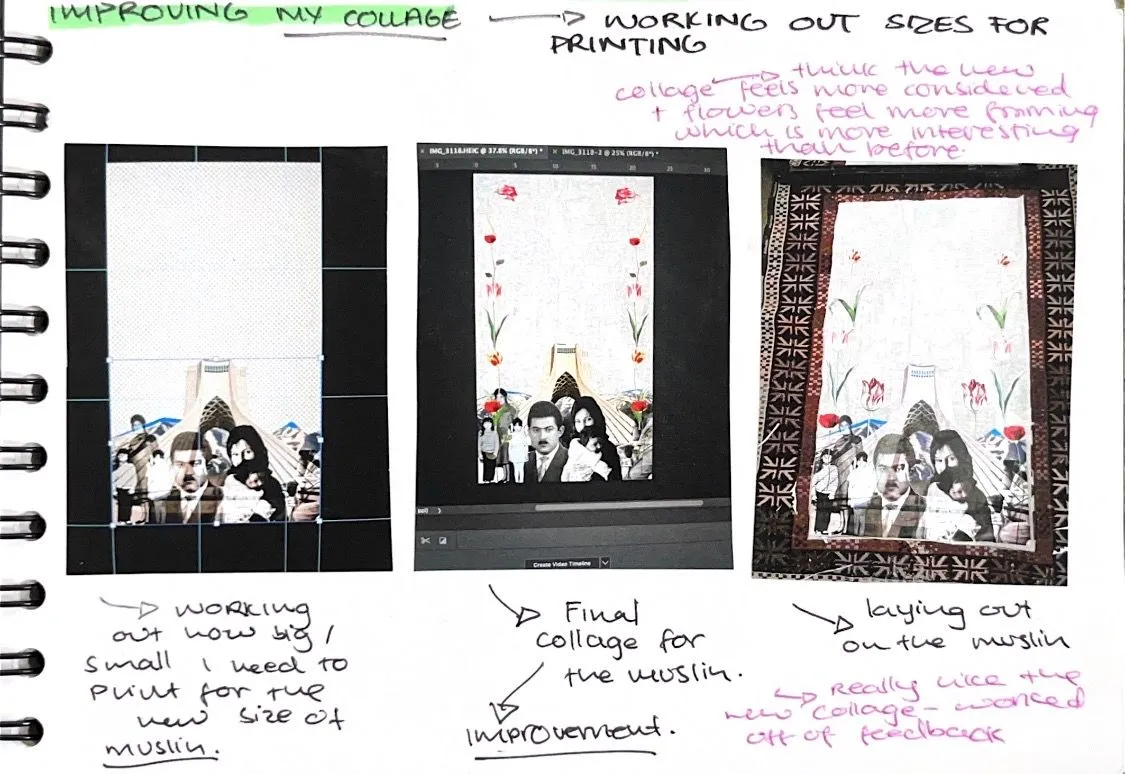 IMPROVING MY COLLAGE → WORKING OUT SIZES FOR
PRINTING
→ think the new
collage feels more considered
+ flowers feel more framing
which is more interesting
than before.
× IMG_3118.HEIC @ 37.8% (RGB/8*) * × IMG_3118-2 @ 25% (RGB/8*) *
5 0 5 10 15 20 25 30
Create Video Timeline
→ WORKING
out how big /
small I need to
print for the
new size of
muslin.
→ Final
collage for
the muslin.
↓
improvement.
→ laying out
on the muslin
→ Really like the
new collage - worked
off of feedback